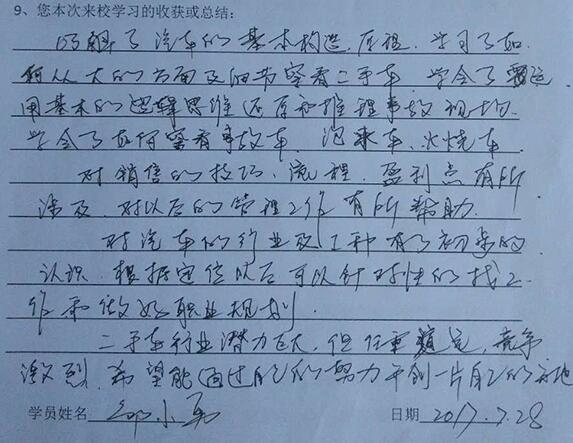 9、您本次来校学习的收获或总结：
巧解了汽车的基本构造、原理. 学习了如
何从大的方面及细节察看二手车. 学会了要运
用基本的逻辑思维还原和推理事故现场.
学会了如何察看事故车、泡水车、火烧车.
对销售的技巧、流程、盈利点有所
涉及. 对以后的管理工作有所帮助.
对汽车的行业及工种有了初步的
认识. 根据定位以后可以针对性的找工
作和做好职业规划.
二手车行业潜力巨大. 但任重道远, 竞争
激烈. 希望能通过自己的努力开创一片自己的天地
学员姓名 小勇
日期 2017.7.28